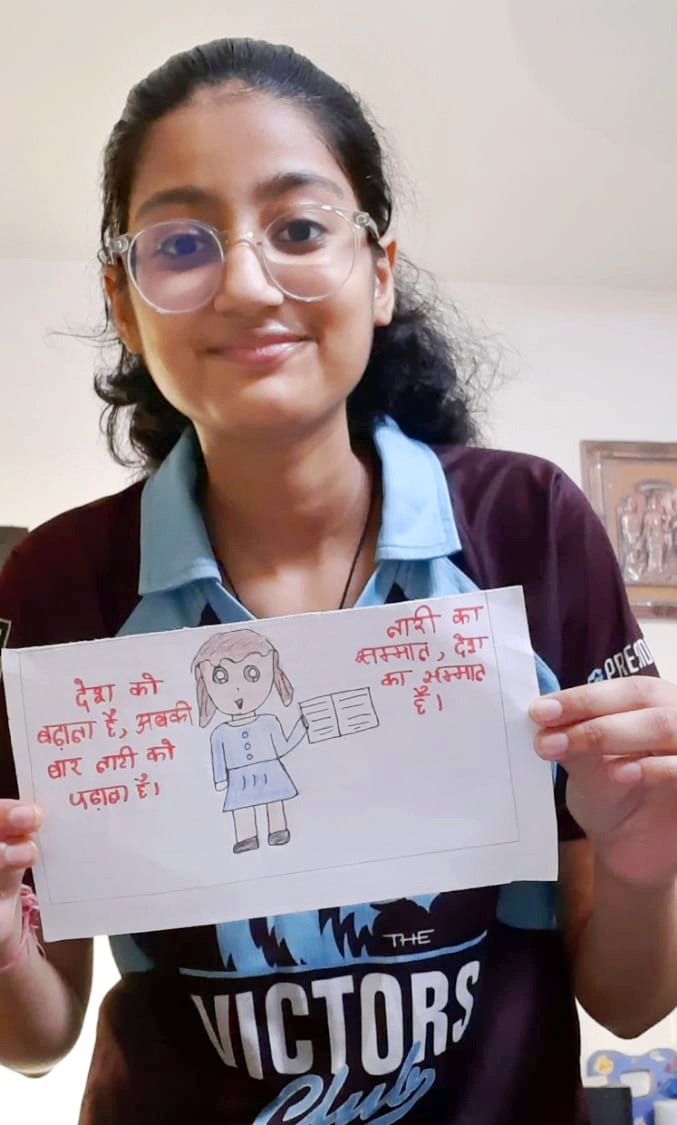 देश को
बढ़ाना है, अबकी
बार नारी को
पढ़ाना है।
नारी का
सम्मान, देश
का सम्मान
है।
THE
VICTORS
Club